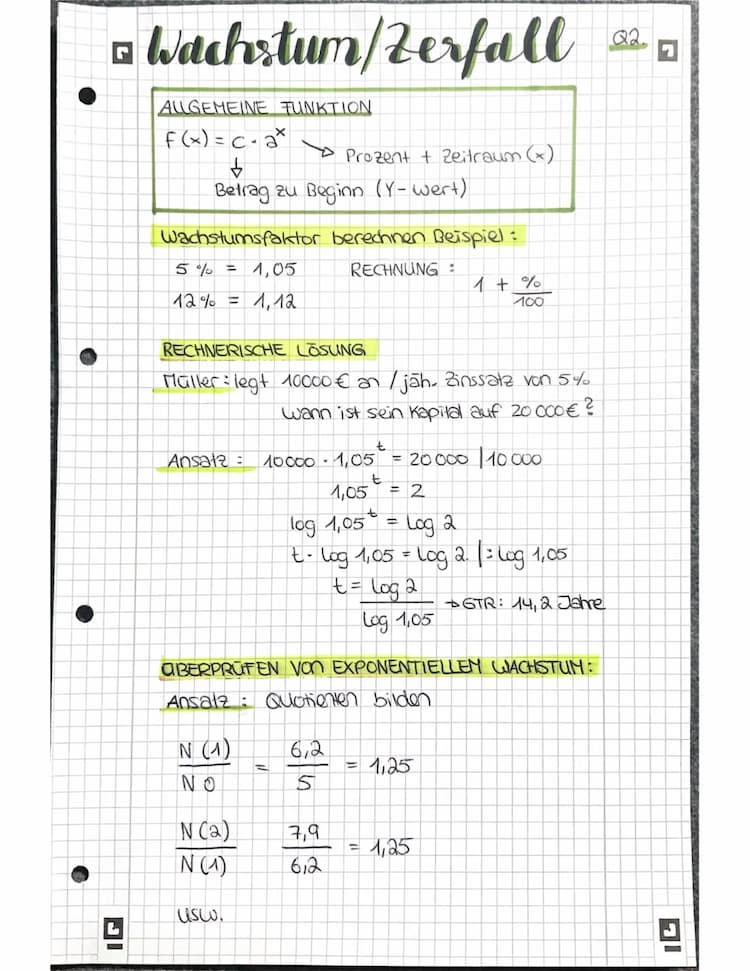 Wachstum/Zerfall
Q2
ALLGEMEINE FUNKTION
f(x) = c · a^x → Prozent + Zeitraum (x)
↓
Betrag zu Beginn (Y-Wert)
Wachstumsfaktor berechnen Beispiel:
5% = 1,05 RECHNUNG: 1 + %/100
12% = 1,12
RECHNERISCHE LÖSUNG
Müller: legt 10000€ an / jäh. Zinssatz von 5%
Wann ist sein Kapital auf 20000€?
Ansatz: 10000 · 1,05^t = 20000 | 10000
1,05^t = 2
log 1,05^t = Log 2
t · Log 1,05 = Log 2 |: Log 1,05
t = Log 2 / Log 1,05 → GTR: 14,2 Jahre
ÜBERPRÜFEN VON EXPONENTIELLEM WACHSTUM:
Ansatz: Quotienen bilden
N(1) / N0 = 6,2 / 5 = 1,25
N(2) / N(1) 7,9 / 6,2 = 1,25
usw.